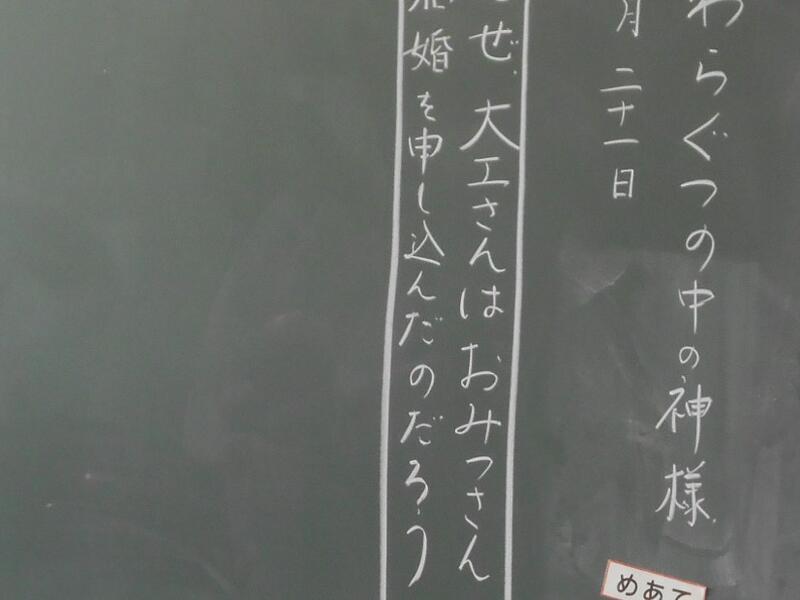 わらぐつの中の神様
月二十一日
なぜ、大工さんはおみつさん
結婚を申し込んだのだろう
めあて